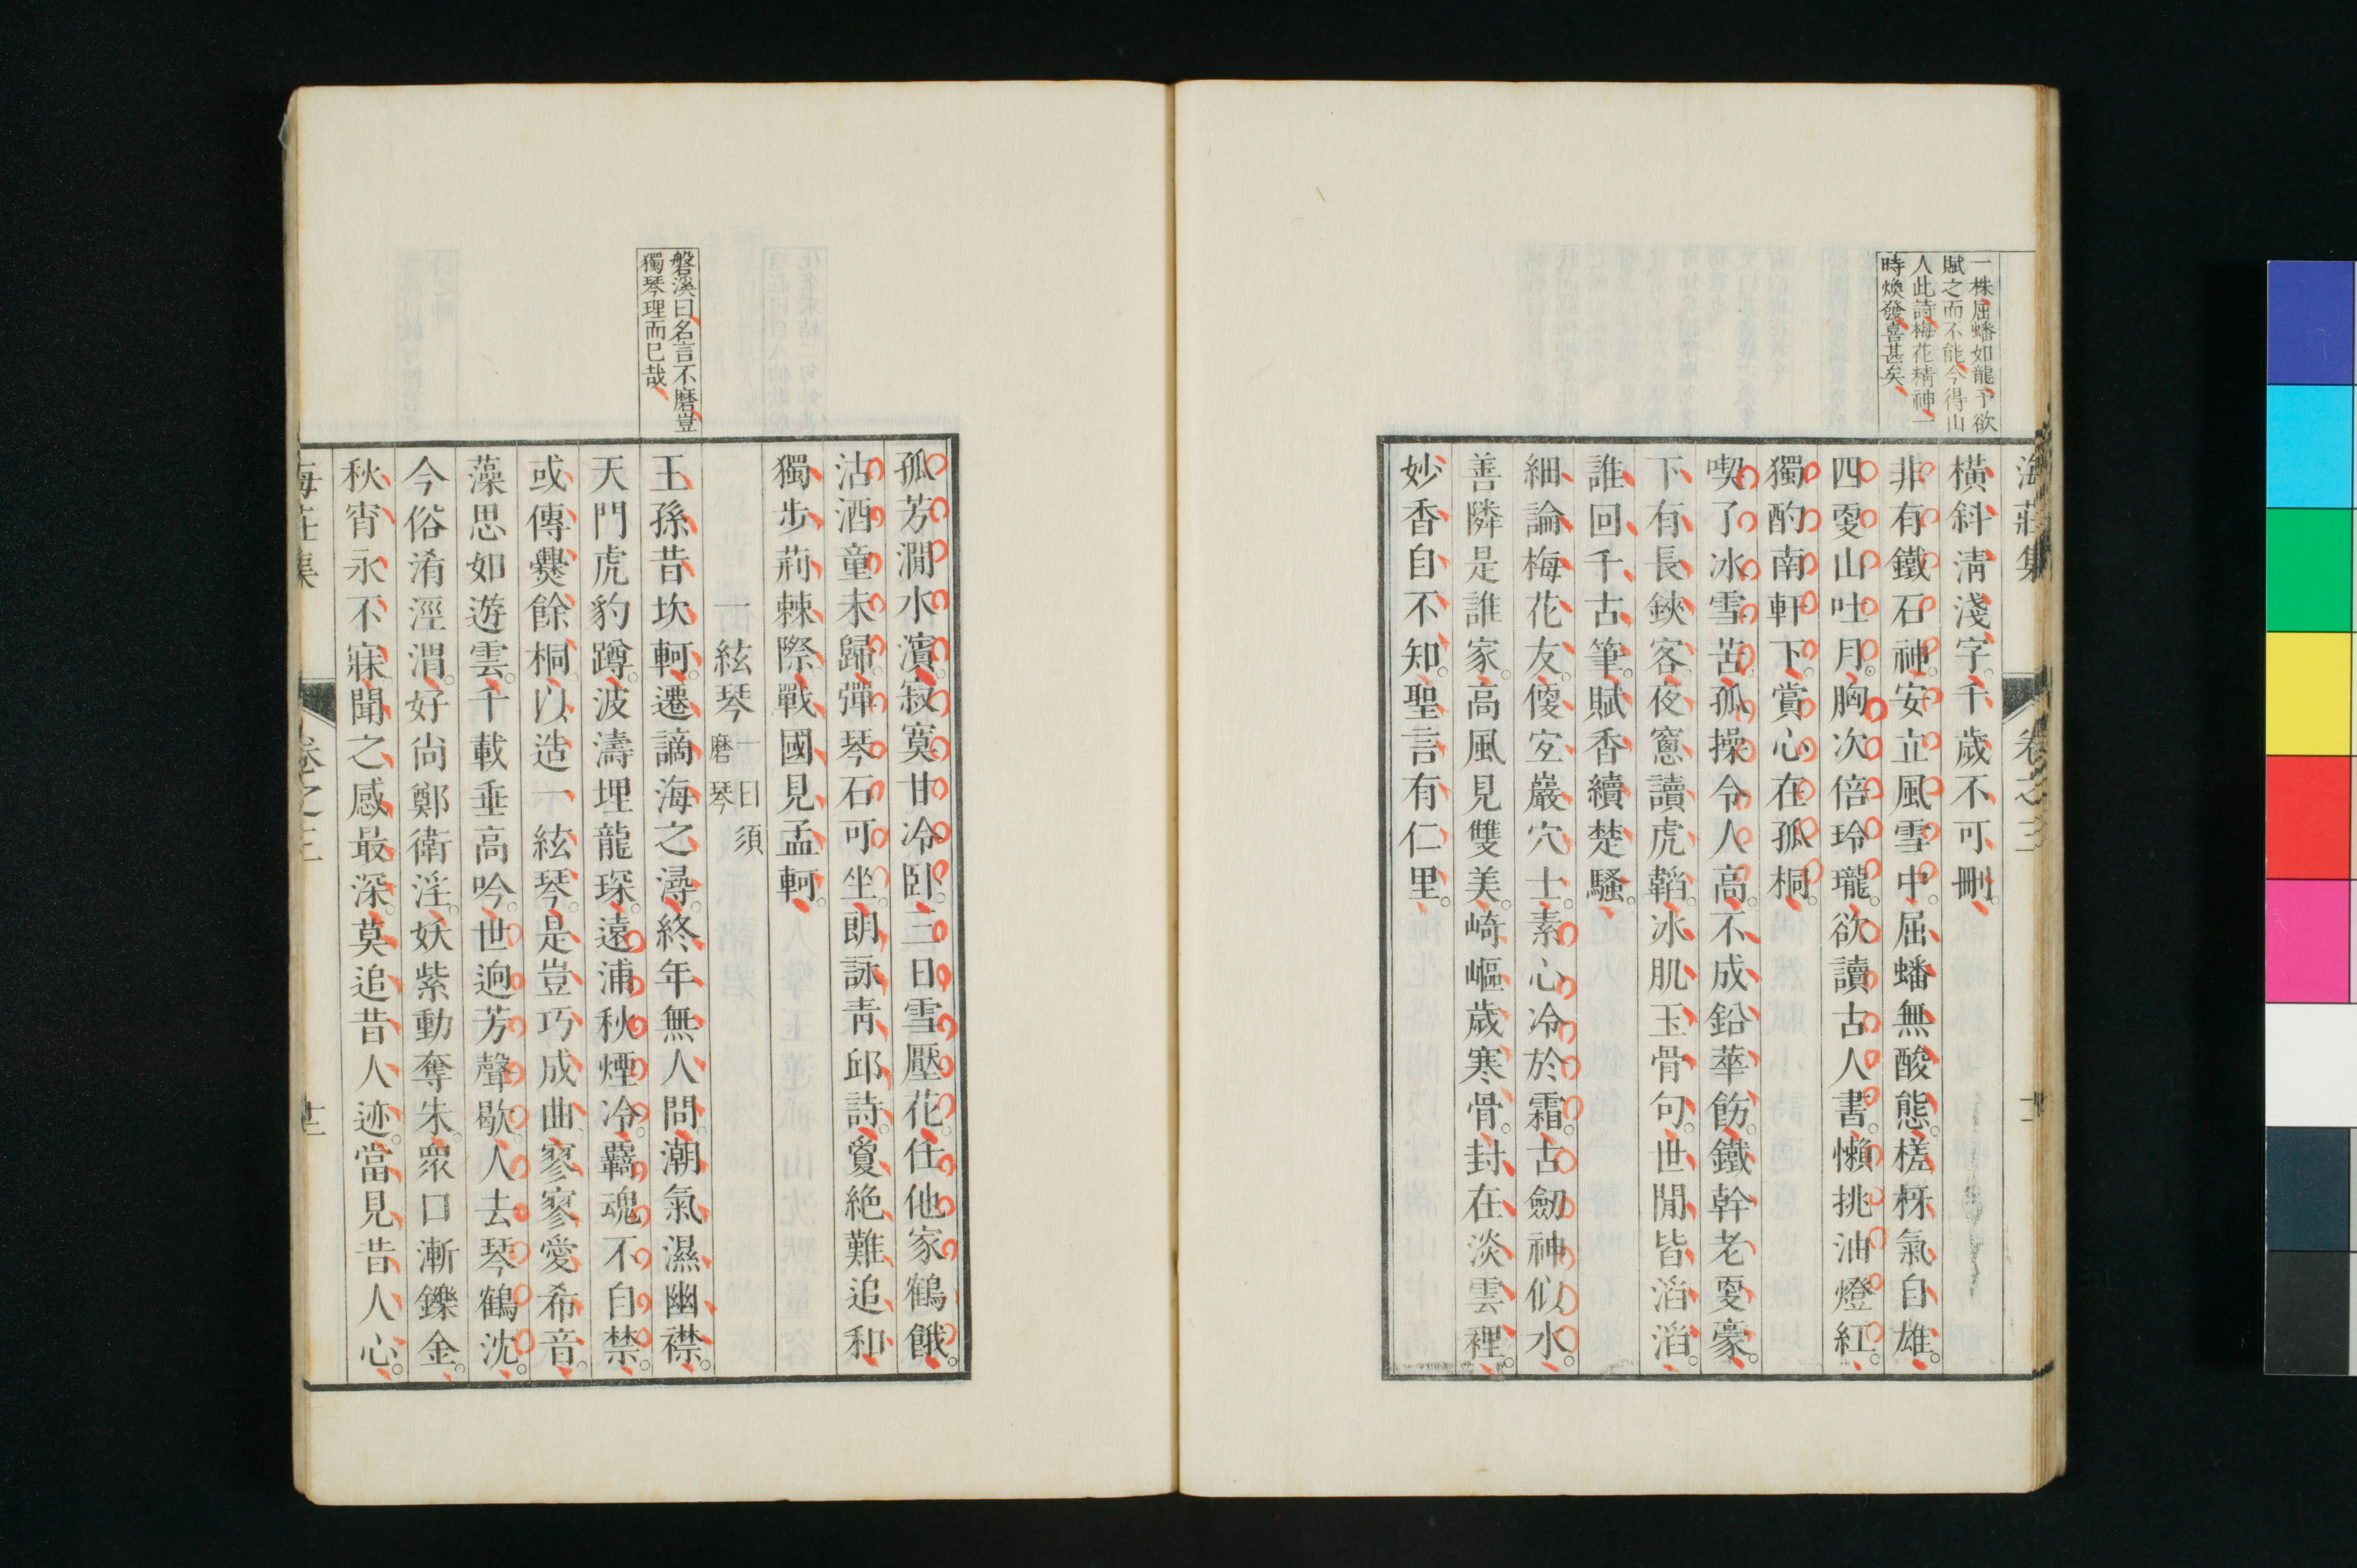 一株屈蟠如龍予欲
賦之而不能今得山
人此詩梅花精神一
時煥發喜甚矣
海莊集 卷之三
橫斜淸淺字千歲不可刪
非有鐵石神安立風雪中屈蟠無酸態槎枒氣自雄
四更山吐月胸次倍玲瓏欲讀古人書懶挑油燈紅
獨酌南軒下賞心在孤桐
喫了冰雪苦孤操令人高不成鉛華飭鐵幹老更豪
下有長鋏客夜窻讀虎韜冰肌玉骨句世閒皆滔滔
誰回千古筆賦香續楚騷
細論梅花友傻㝎巖穴士素心冷於霜古劒神似水
善隣是誰家高風見雙美崎嶇歲寒骨封在淡雲裡
妙香自不知聖言有仁里
孤芳澗水濱寂寞甘冷臥三日雪壓花任他家鶴餓
沽酒童未歸彈琴石可坐朗詠靑邱詩夐絕難追和
獨步荊棘際戰國見孟軻
磐溪曰名言不磨豈
獨琴理而已哉
一絃琴 一曰須磨琴
王孫昔坎軻遷謫海之潯終年無人問潮氣濕幽襟
天門虎豹蹲波濤埋龍琛遠浦秋煙冷羇魂不自禁
或傳爨餘桐以造一絃琴是豈巧成曲寥寥愛希音
藻思如遊雲千載垂高吟世逈芳聲歇人去琴鶴沈
今俗淆涇渭好尙鄭衛淫妖紫動奪朱衆口漸鑠金
秋宵永不寐聞之感最深莫追昔人迹當見昔人心
海莊集 卷之三 十二